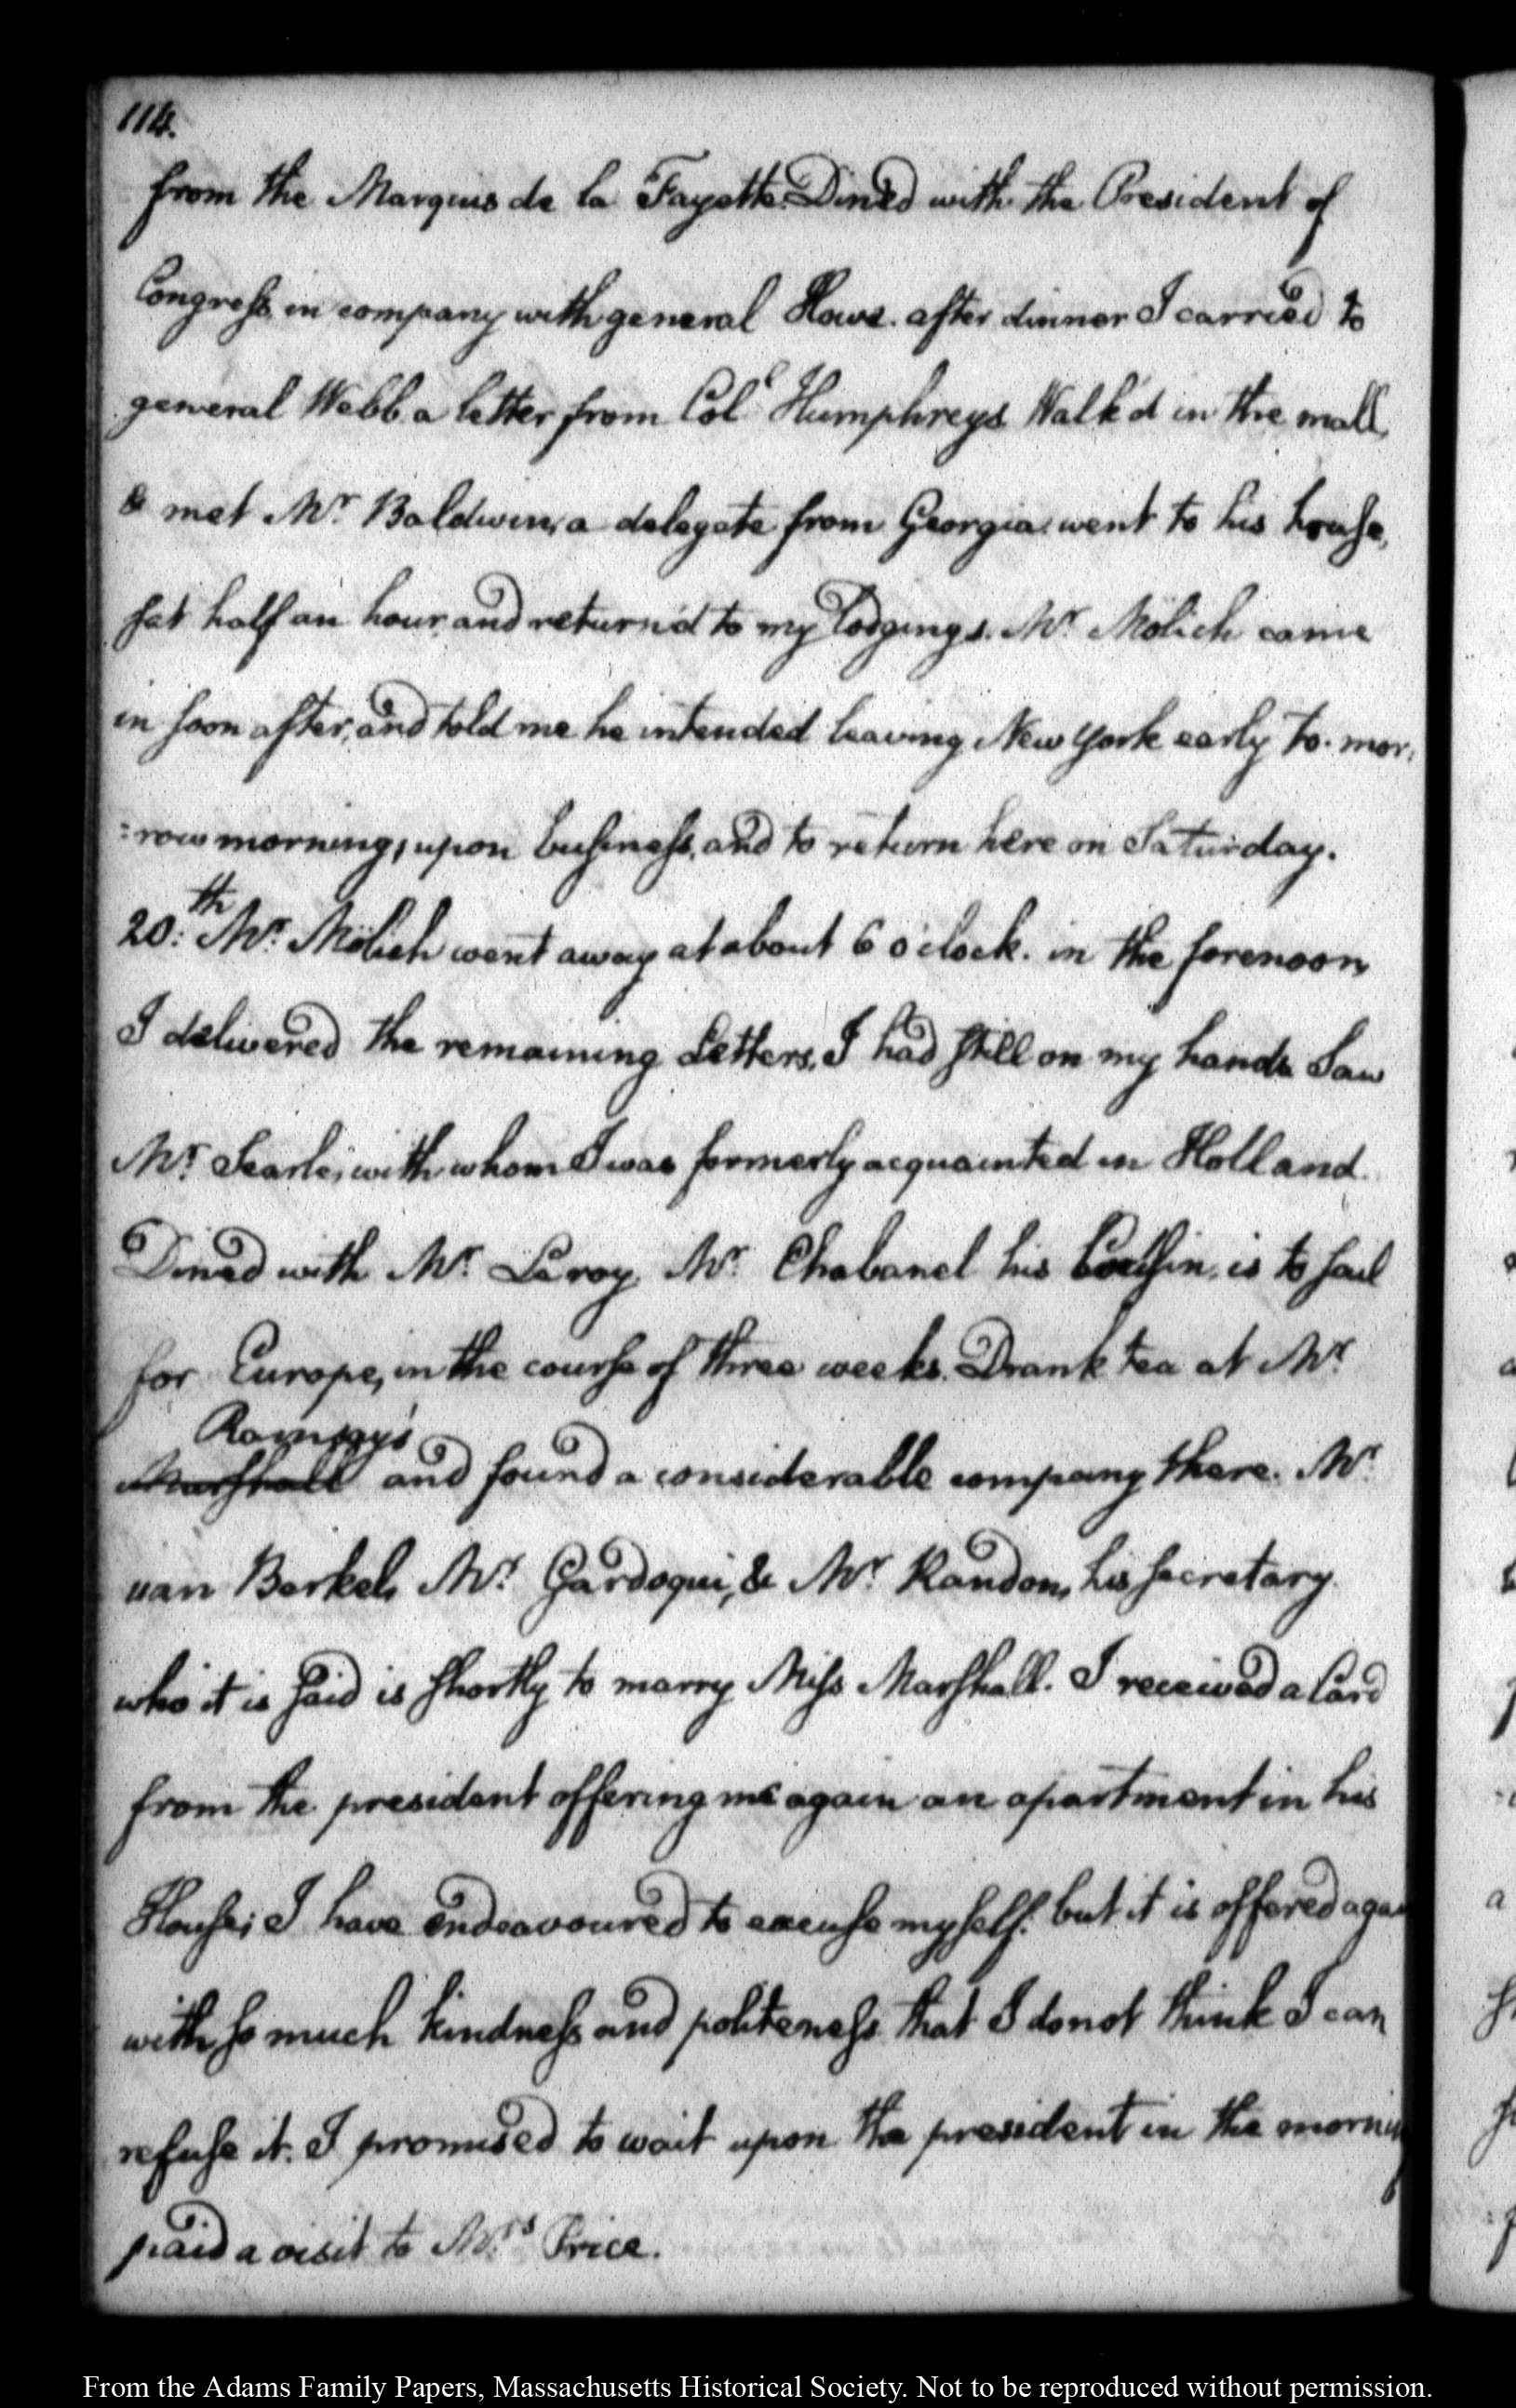 114.
from the Marquis de la Fayette. Dined with the President of
Congress in company with general Howe. after dinner I carried to
general Webb a letter from Coll Humphreys Walk'd in the mall,
& met Mr. Baldwin, a delegate from Georgia. went to his house,
sat half an hour, and return'd to my lodgings. Mr. Mölich came
in soon after, and told me he intended leaving New York early to-mor:
=row morning, upon business, and to return here on Saturday.
20:th Mr. Mölich went away at about 6 o'clock. in the forenoon
I delivered the remaining Letters, I had still on my hands Saw
Mr. Searle, with whom I was formerly acquainted in Holland.
Dined with Mr. Leroy. Mr. Chabanel his Coussin, is to sail
for Europe, in the course of three weeks. Drank tea at Mr.
Ramsay's
Marshall and found a considerable company there. Mr.
van Berkel, Mr. Gardoqui, & Mr. Randon, his secretary.
who it is said is shortly to marry Miss Marshall. I received a Card
from the president offering me again an apartment in his
House; I have endeavoured to excuse myself. but it is offered again
with so much kindness and politeness that I do not think I can
refuse it. I promised to wait upon the president in the morning
paid a visit to Mrs. Price.
From the Adams Family Papers, Massachusetts Historical Society. Not to be reproduced without permission.